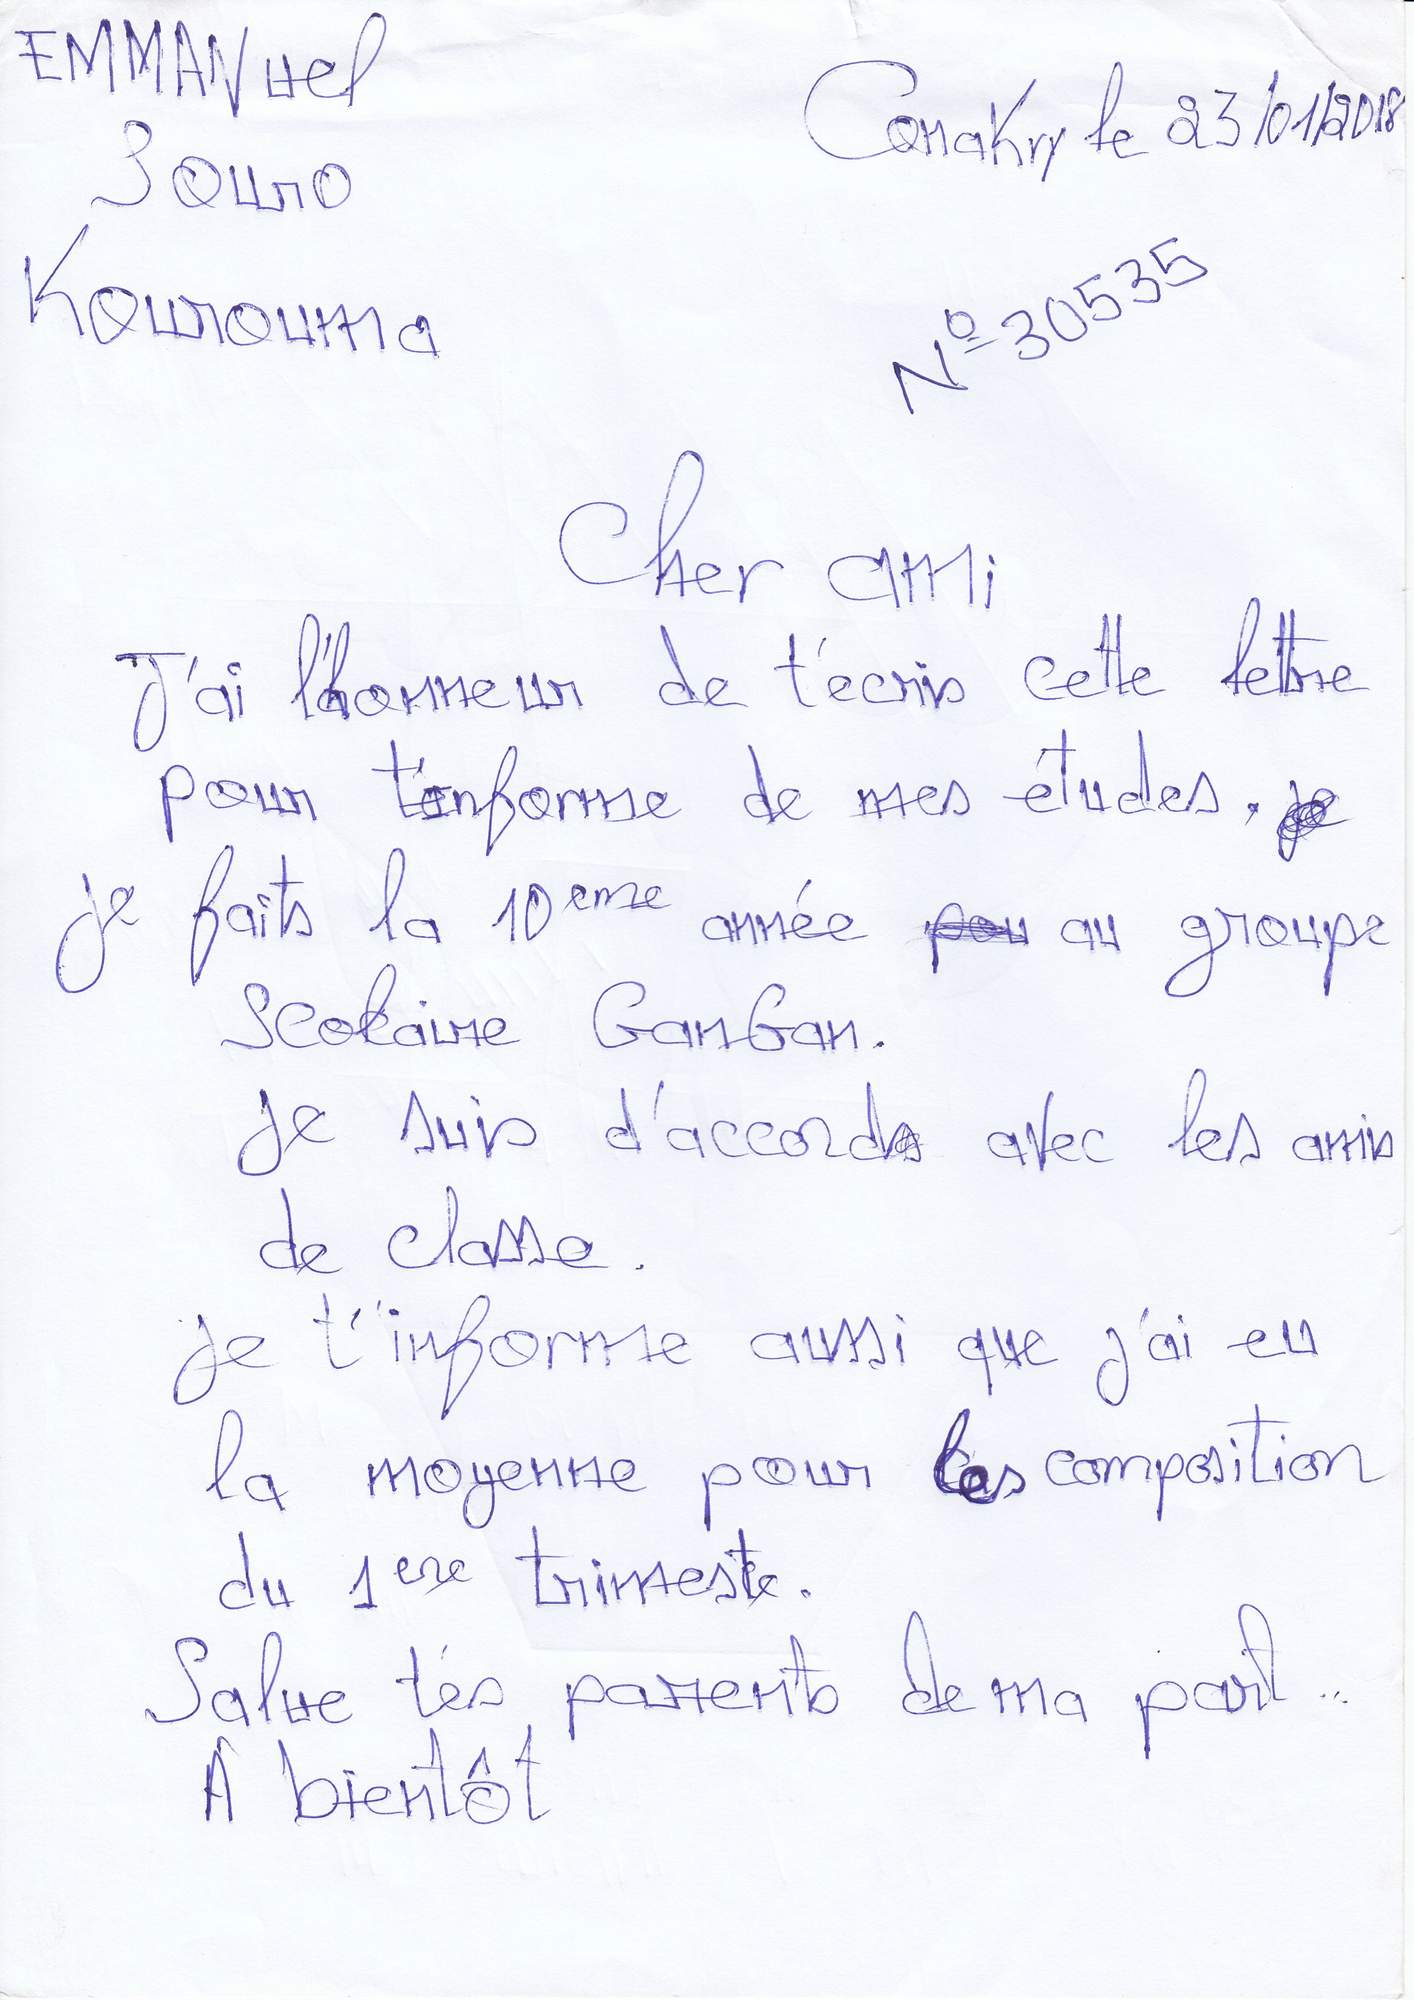 EMMANuel
Souro
Kourouma
Conakry le 23/01/2018
Nº 30535
Cher ami
J'ai l'honneur de t'écris cette lettre
pour t'informe de mes études. je
je faits la 10eme année pou au groupe
Scolaire GanGan.
Je suis d'accords avec les amis
de classe.
Je t'informe aussi que j'ai eu
la moyenne pour les composition
du 1ere trimeste.
Salue tés parents de ma part..
À bientôt